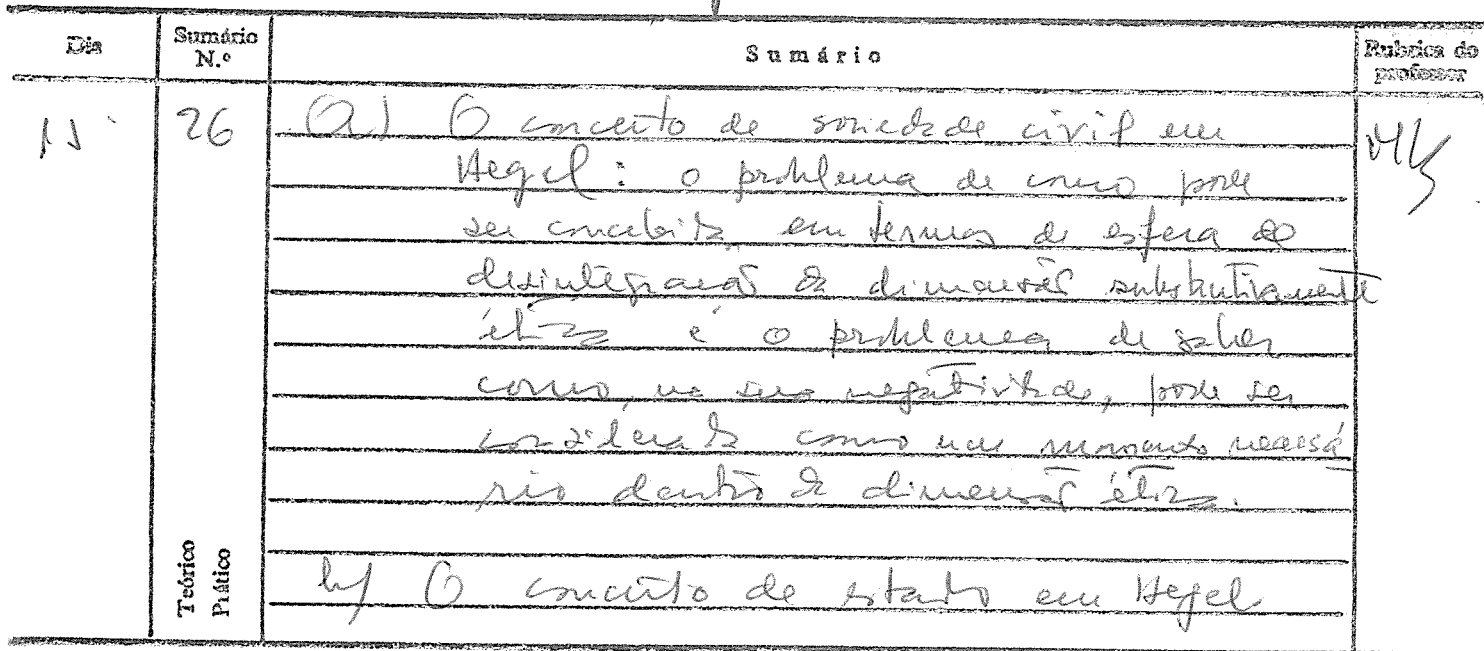 Dia Sumário N.º Sumário Rubrica do professor
26 (a) O conceito de sociedade civil em
Hegel: o problema de como pode
ser concebida em termos de esfera de
desintegração da dimensão substantivamente
ética e o problema de saber
como, na sua negatividade, pode ser
considerada como um momento necessá
rio dentro da dimensão ética.
b) O conceito de estado em Hegel
Teórico
Prático